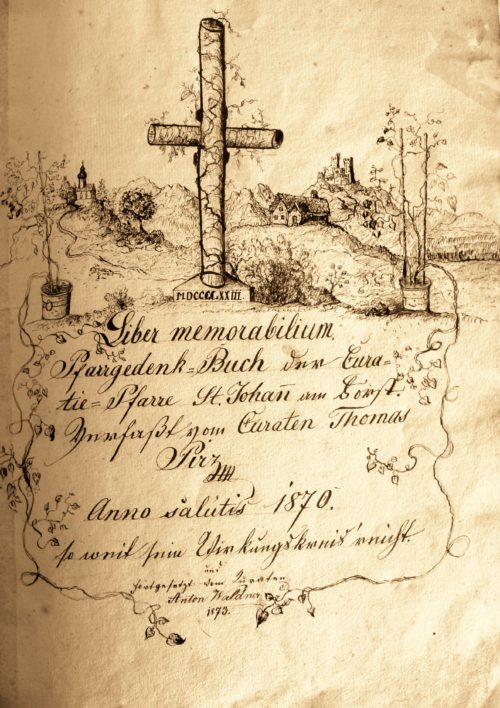 MDCCCLXXIII.
Liber memorabilium.
Pfarrgedenk=Buch der Cura=
tie=Pfarre St. Johan̄ am
Verfaßt vom Curaten Thomas
Pirz
Anno salutis 1870.
so weit sein Wirkungskreis reicht.
und
fortgesetzt vom Curaten
Anton Waldner
1873.